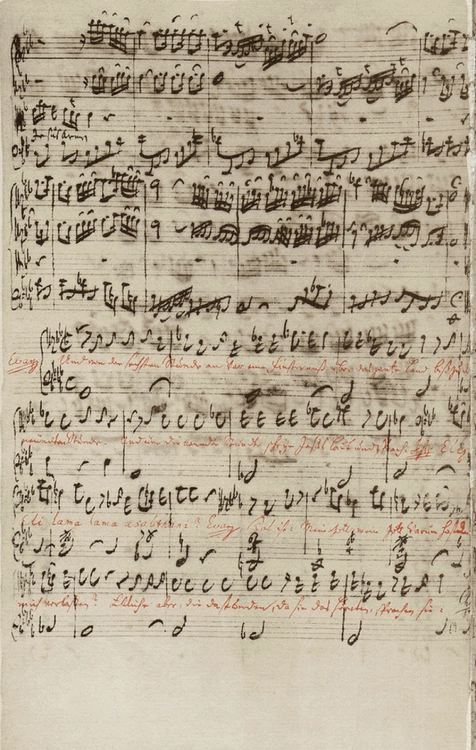 Evang. Und von der sechsten Stunde an war eine Finsterniß über das gantze Land
Stunde. Und um die neundte Stunde schrye Jesus laut und sprach Eli
Eli lama lama asabthani? Evang. Das ist: Mein Gott, mein Gott warum
mich verlaßen? Etliche aber, die da stunden, da sie das höreten, sprachen sie: